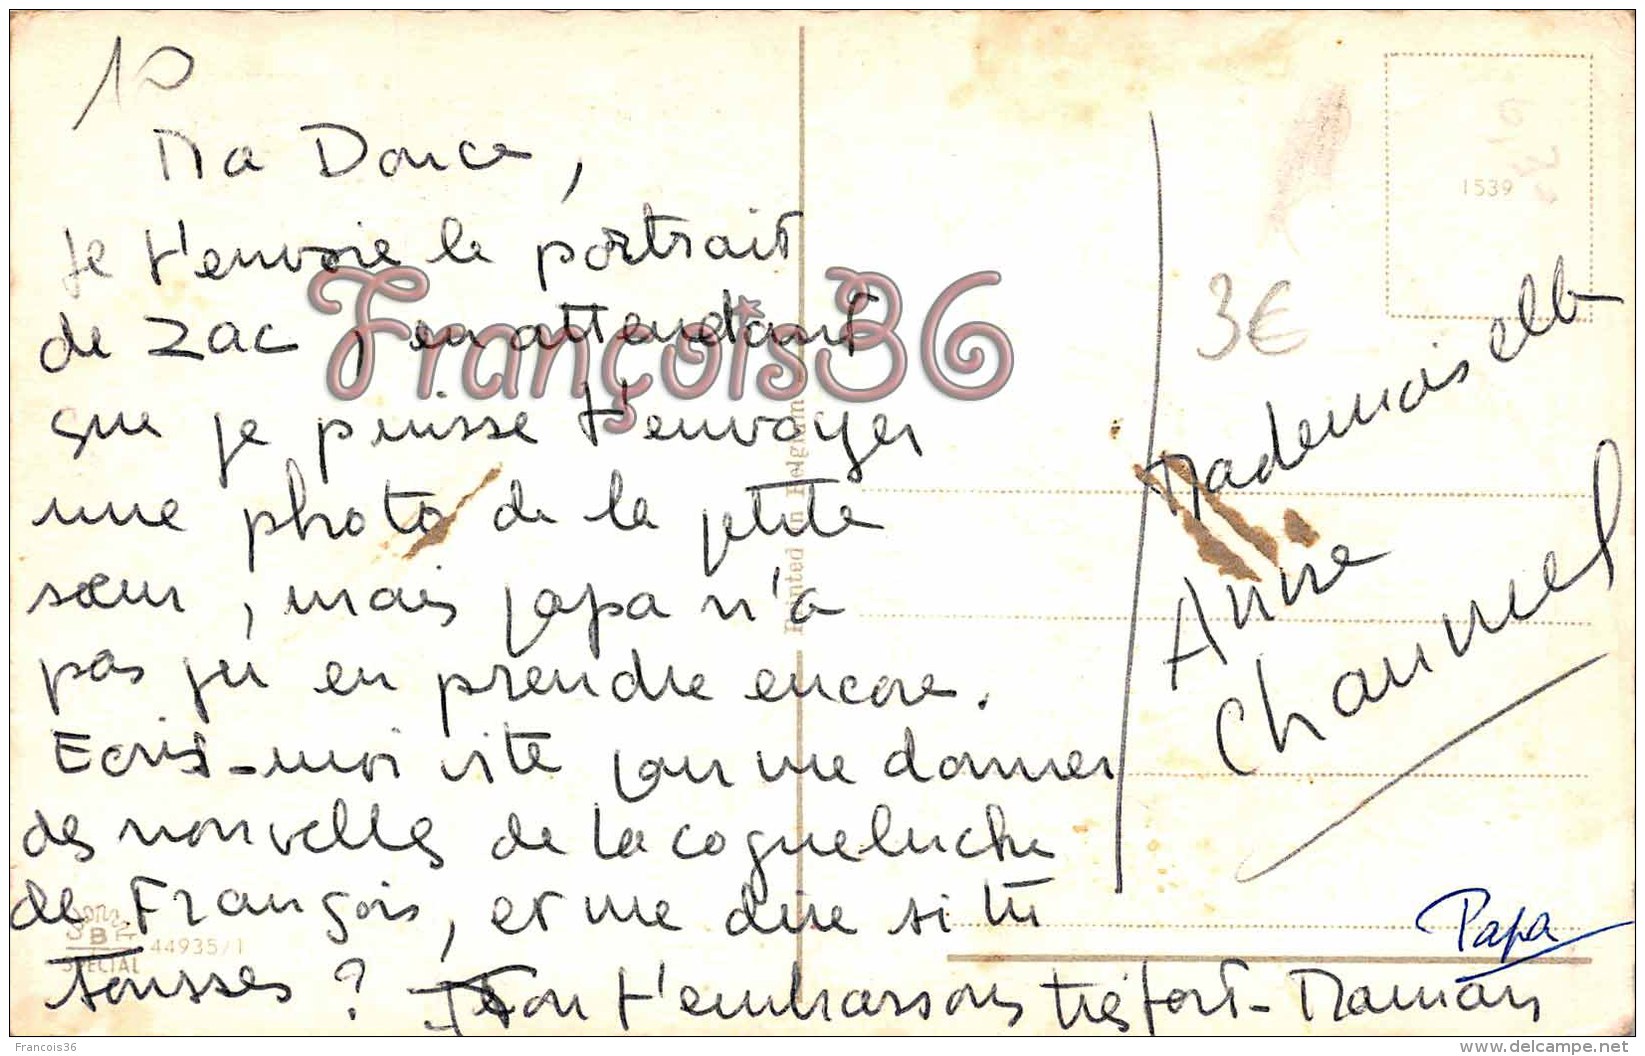 10
Ma Douce,
Je t'envoie le portrait
de Zac, en attendant
que je puisse t'envoyer
une photo de la petite
sœur, mais papa n'a
pas pu en prendre encore.
Ecris-moi vite pour me donner
des nouvelles de la coqueluche
de François, et me dire si tu
tousses ?
t'embrassons très fort - Maman
Papa
Mademoiselle
Anne
Chaumel
3€
1539
François36
Printed in Belgium
B
SPECIAL
44935/1
Francois36
www.delcampe.net